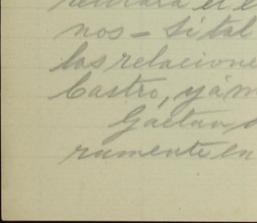 nos – Si tal
las relacione
Castro, y á m
Gaetan
ramente en